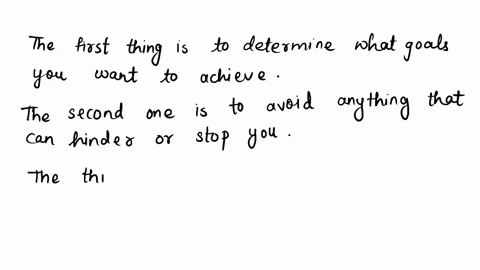 The first thing is to determine what goals
you want to achieve.
The second one is to avoid anything that
can hinder or stop you.
The thi